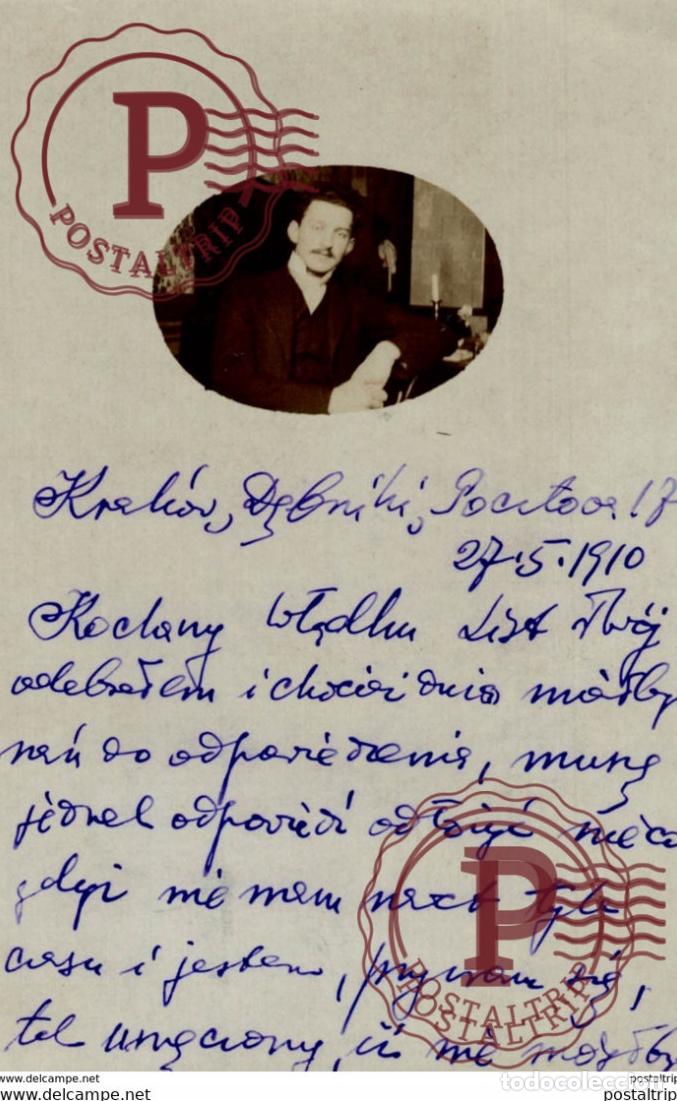 P
POSTALTRIP
Kraków, Dębniki, Pocztowa 17
27.5.1910
Kochany Władku List Twój
odebrałem i chociaż dziś mógłby
nań do odpowiedzenia, muszę
jednak odpowiedź odłożyć nieco
gdyż nie mam nazb tyle
czasu i jestem, przyznam się,
tak umęczony, iż nie mógłby
P
POSTALTRIP
POSTALTRIP
www.delcampe.net postaltrip
todocoleccion
www.delcampe.net postaltrip